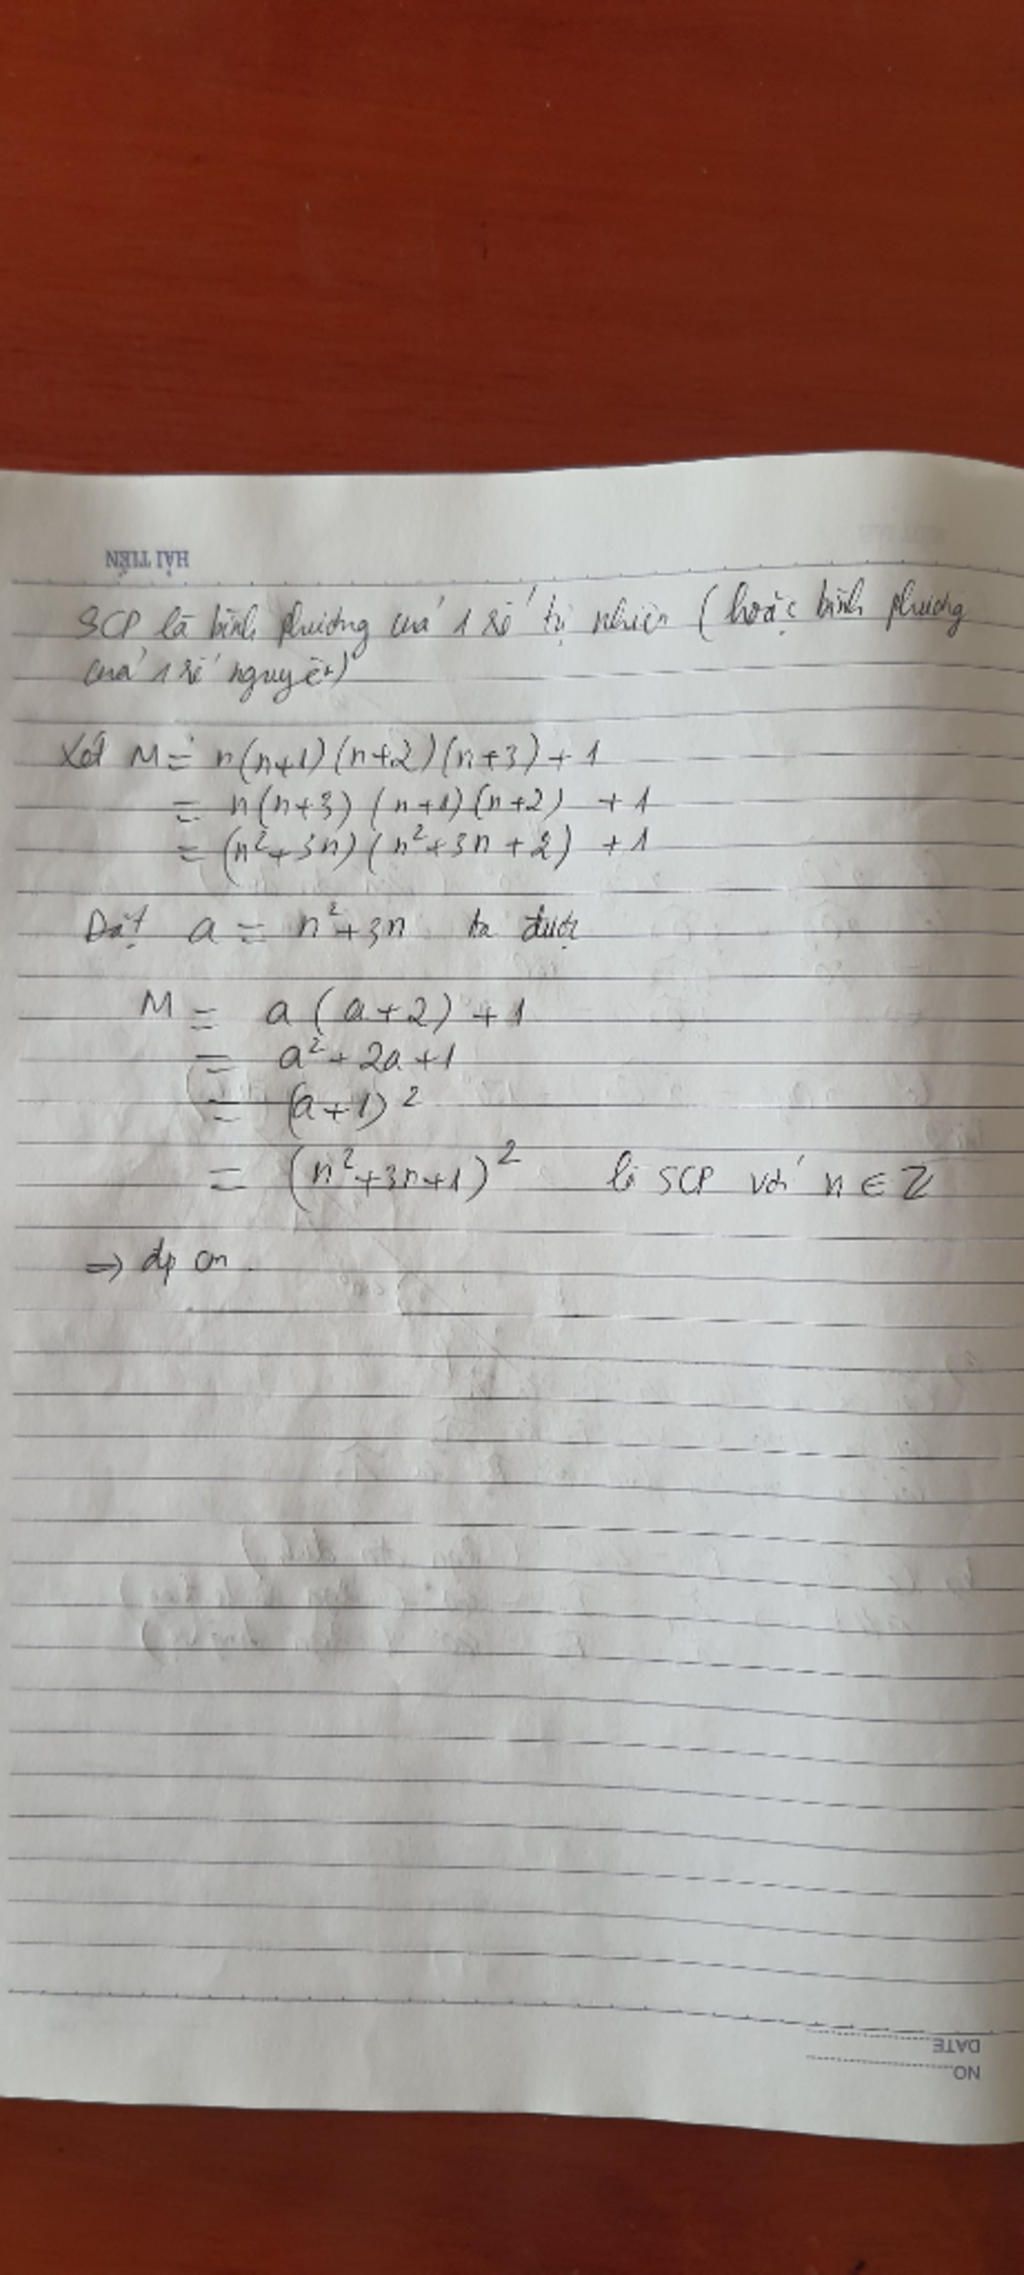 HẢI TIẾN
SCP là bình phương của 1 số tự nhiên (hoặc bình phương
của 1 số nguyên)
Xét M = n(n+1)(n+2)(n+3)+1
= n(n+3)(n+1)(n+2) +1
= (n²+3n)(n²+3n+2) +1
Đặt a = n²+3n ta được
M = a(a+2)+1
= a²+2a+1
= (a+1)²
= (n²+3n+1)² là SCP với n ∈ Z
=> đpcm.
DATE
NO